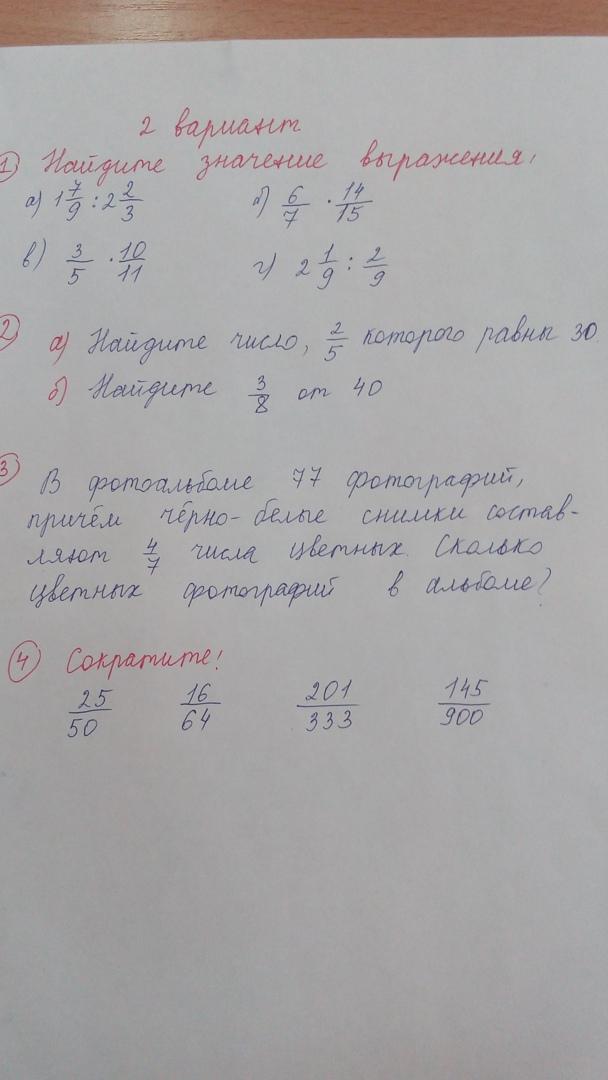 2 вариант
1) Найдите значение выражения:
а) 1 7/9 : 2 2/3 б) 6/7 · 14/15
в) 3/5 · 10/11 г) 2 1/9 : 2/9
2 а) Найдите число, 2/5 которого равны 30.
б) Найдите 3/8 от 40
3 В фотоальбоме 77 фотографий,
причём чёрно-белые снимки состав-
ляют 4/7 числа цветных. Сколько
цветных фотографий в альбоме?
4 Сократите!
25/50 16/64 201/333 145/900